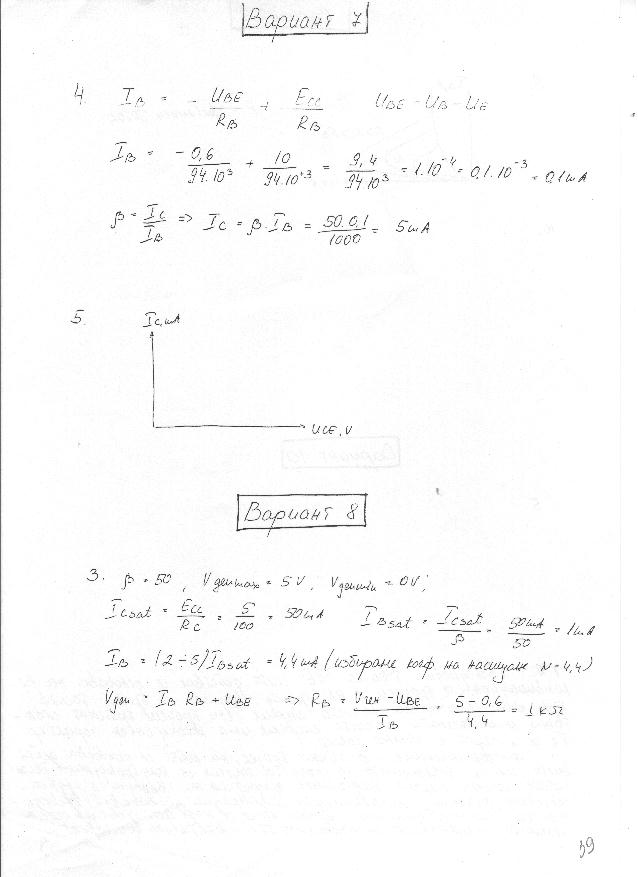 Вариант 7
4. I_B = - U_BE / R_B + E_CC / R_B U_BE - U_B - U_E
I_B = -0,6 / 94.10^3 + 10 / 94.10^+3 = 9,4 / 94 10^3 = 1.10^-4 = 0,1.10^-3 = 0,1mA
β = I_C / I_B => I_C = β.I_B = 50.0,1 / 1000 = 5mA
5. I_C, mA
U_CE, V
Вариант 8
3. β = 50, Vgenmax = 5V, Vgenmin = 0V;
I_Csat = E_CC / R_C = 5 / 100 = 50mA I_Bsat = I_Csat / β = 50mA / 50 = 1mA
I_B = (2÷5)I_Bsat = 4,4mA (избиране коеф на насищане N=4,4)
Vgen = I_B R_B + U_BE => R_B = Vген - U_BE / I_B = 5-0,6 / 4,4 = 1KΩ
39